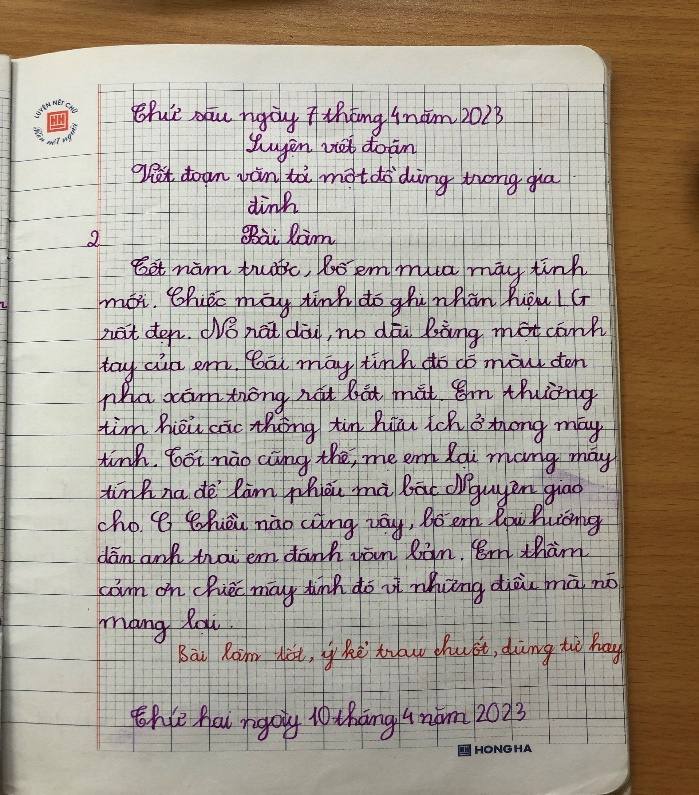 LUYỆN NÉT CHỮ
HH
Rèn nết người
Thứ sáu ngày 7 tháng 4 năm 2023
Luyện viết đoạn
Viết đoạn văn tả một đồ dùng trong gia
đình
2
Bài làm
Tết năm trước, bố em mua máy tính
mới. Chiếc máy tính đó ghi nhãn hiệu LG
rất đẹp. Nó rất dài, no dài bằng một cánh
tay của em. Cái máy tính đó có màu đen
pha xám trông rất bắt mắt. Em thường
tìm hiểu các thông tin hữu ích ở trong máy
tính. Tối nào cũng thế, mẹ em lại mang máy
tính ra để làm phiếu mà bác Nguyên giao
cho. C Chiều nào cũng vậy, bố em lại hướng
dẫn anh trai em đánh văn bản. Em thầm
cảm ơn chiếc máy tính đó vì những điều mà nó
mang lại.
Bài làm tốt, ý kể trau chuốt, dùng từ hay
Thứ hai ngày 10 tháng 4 năm 2023
HH HONG HA